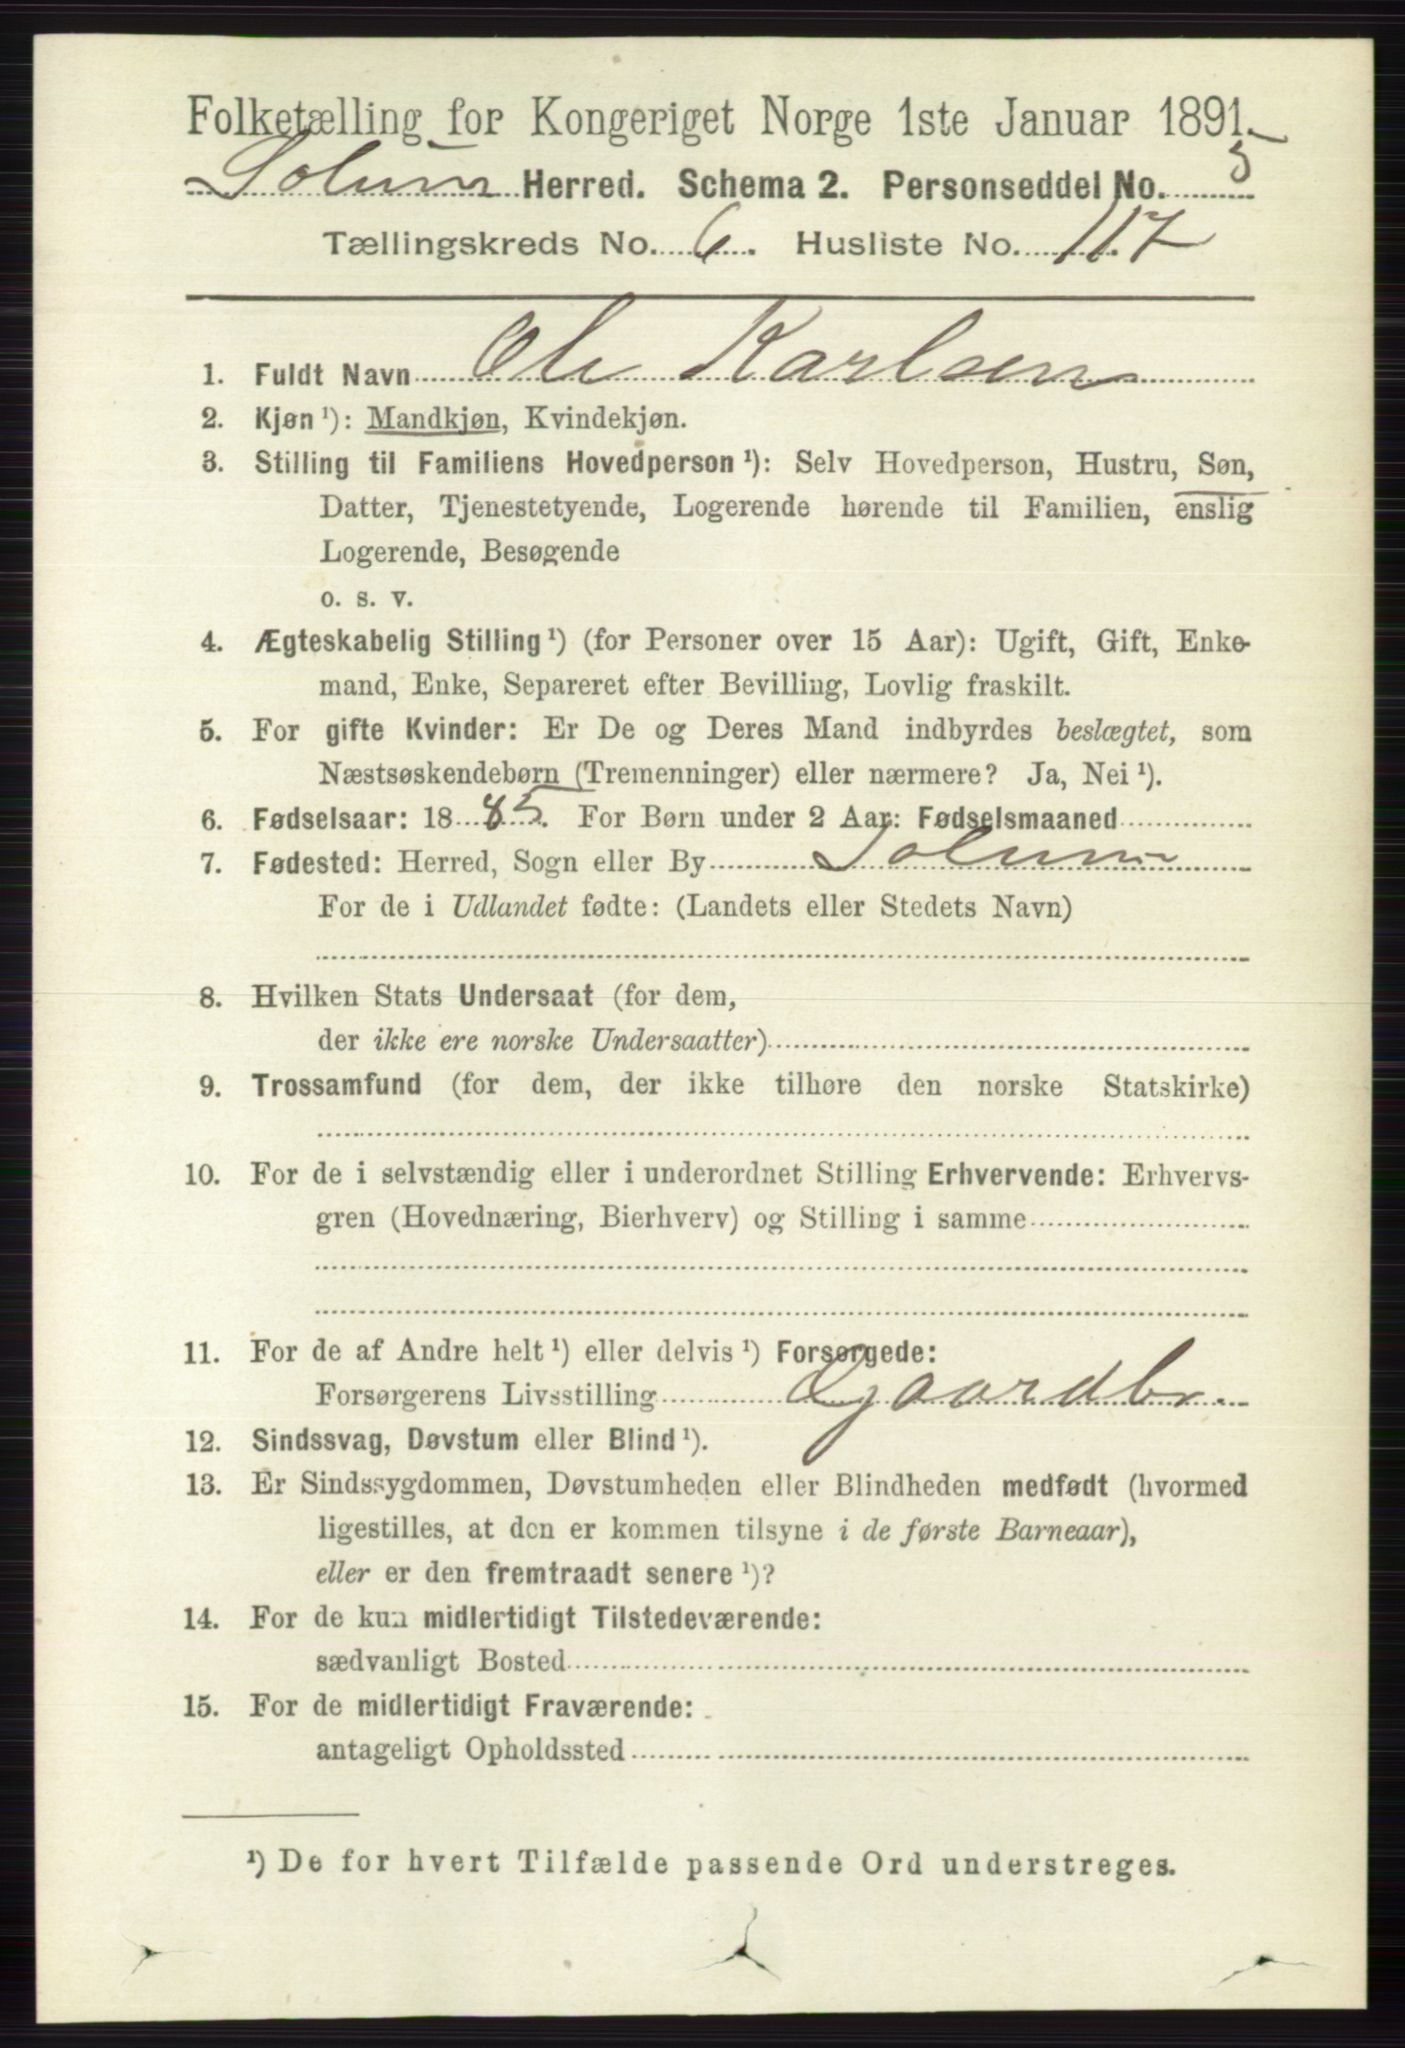 Folketælling for Kongeriget Norge 1ste Januar 1891.
Solum Herred. Schema 2. Personseddel No. 5
Tællingskreds No. 6. Husliste No. 117
1. Fuldt Navn Ole Karlsen
2. Kjøn ¹): Mandkjøn, Kvindekjøn.
3. Stilling til Familiens Hovedperson ¹): Selv Hovedperson, Hustru, Søn,
Datter, Tjenestetyende, Logerende hørende til Familien, enslig
Logerende, Besøgende
o. s. v.
4. Ægteskabelig Stilling ¹) (for Personer over 15 Aar): Ugift, Gift, Enke-
mand, Enke, Separeret efter Bevilling, Lovlig fraskilt.
5. For gifte Kvinder: Er De og Deres Mand indbyrdes beslægtet, som
Næstsøskendebørn (Tremenninger) eller nærmere? Ja, Nei ¹).
6. Fødselsaar: 1885. For Børn under 2 Aar: Fødselsmaaned
7. Fødested: Herred, Sogn eller By Solum
For de i Udlandet fødte: (Landets eller Stedets Navn)
8. Hvilken Stats Undersaat (for dem,
der ikke ere norske Undersaatter)
9. Trossamfund (for dem, der ikke tilhøre den norske Statskirke)
10. For de i selvstændig eller i underordnet Stilling Erhvervende: Erhvervs-
gren (Hovednæring, Bierhverv) og Stilling i samme
11. For de af Andre helt ¹) eller delvis ¹) Forsørgede:
Forsørgerens Livsstilling Gaardbr.
12. Sindssvag, Døvstum eller Blind ¹).
13. Er Sindssygdommen, Døvstumheden eller Blindheden medfødt (hvormed
ligestilles, at den er kommen tilsyne i de første Barneaar),
eller er den fremtraadt senere ¹)?
14. For de kun midlertidigt Tilstedeværende:
sædvanligt Bosted
15. For de midlertidigt Fraværende:
antageligt Opholdssted
¹) De for hvert Tilfælde passende Ord understreges.